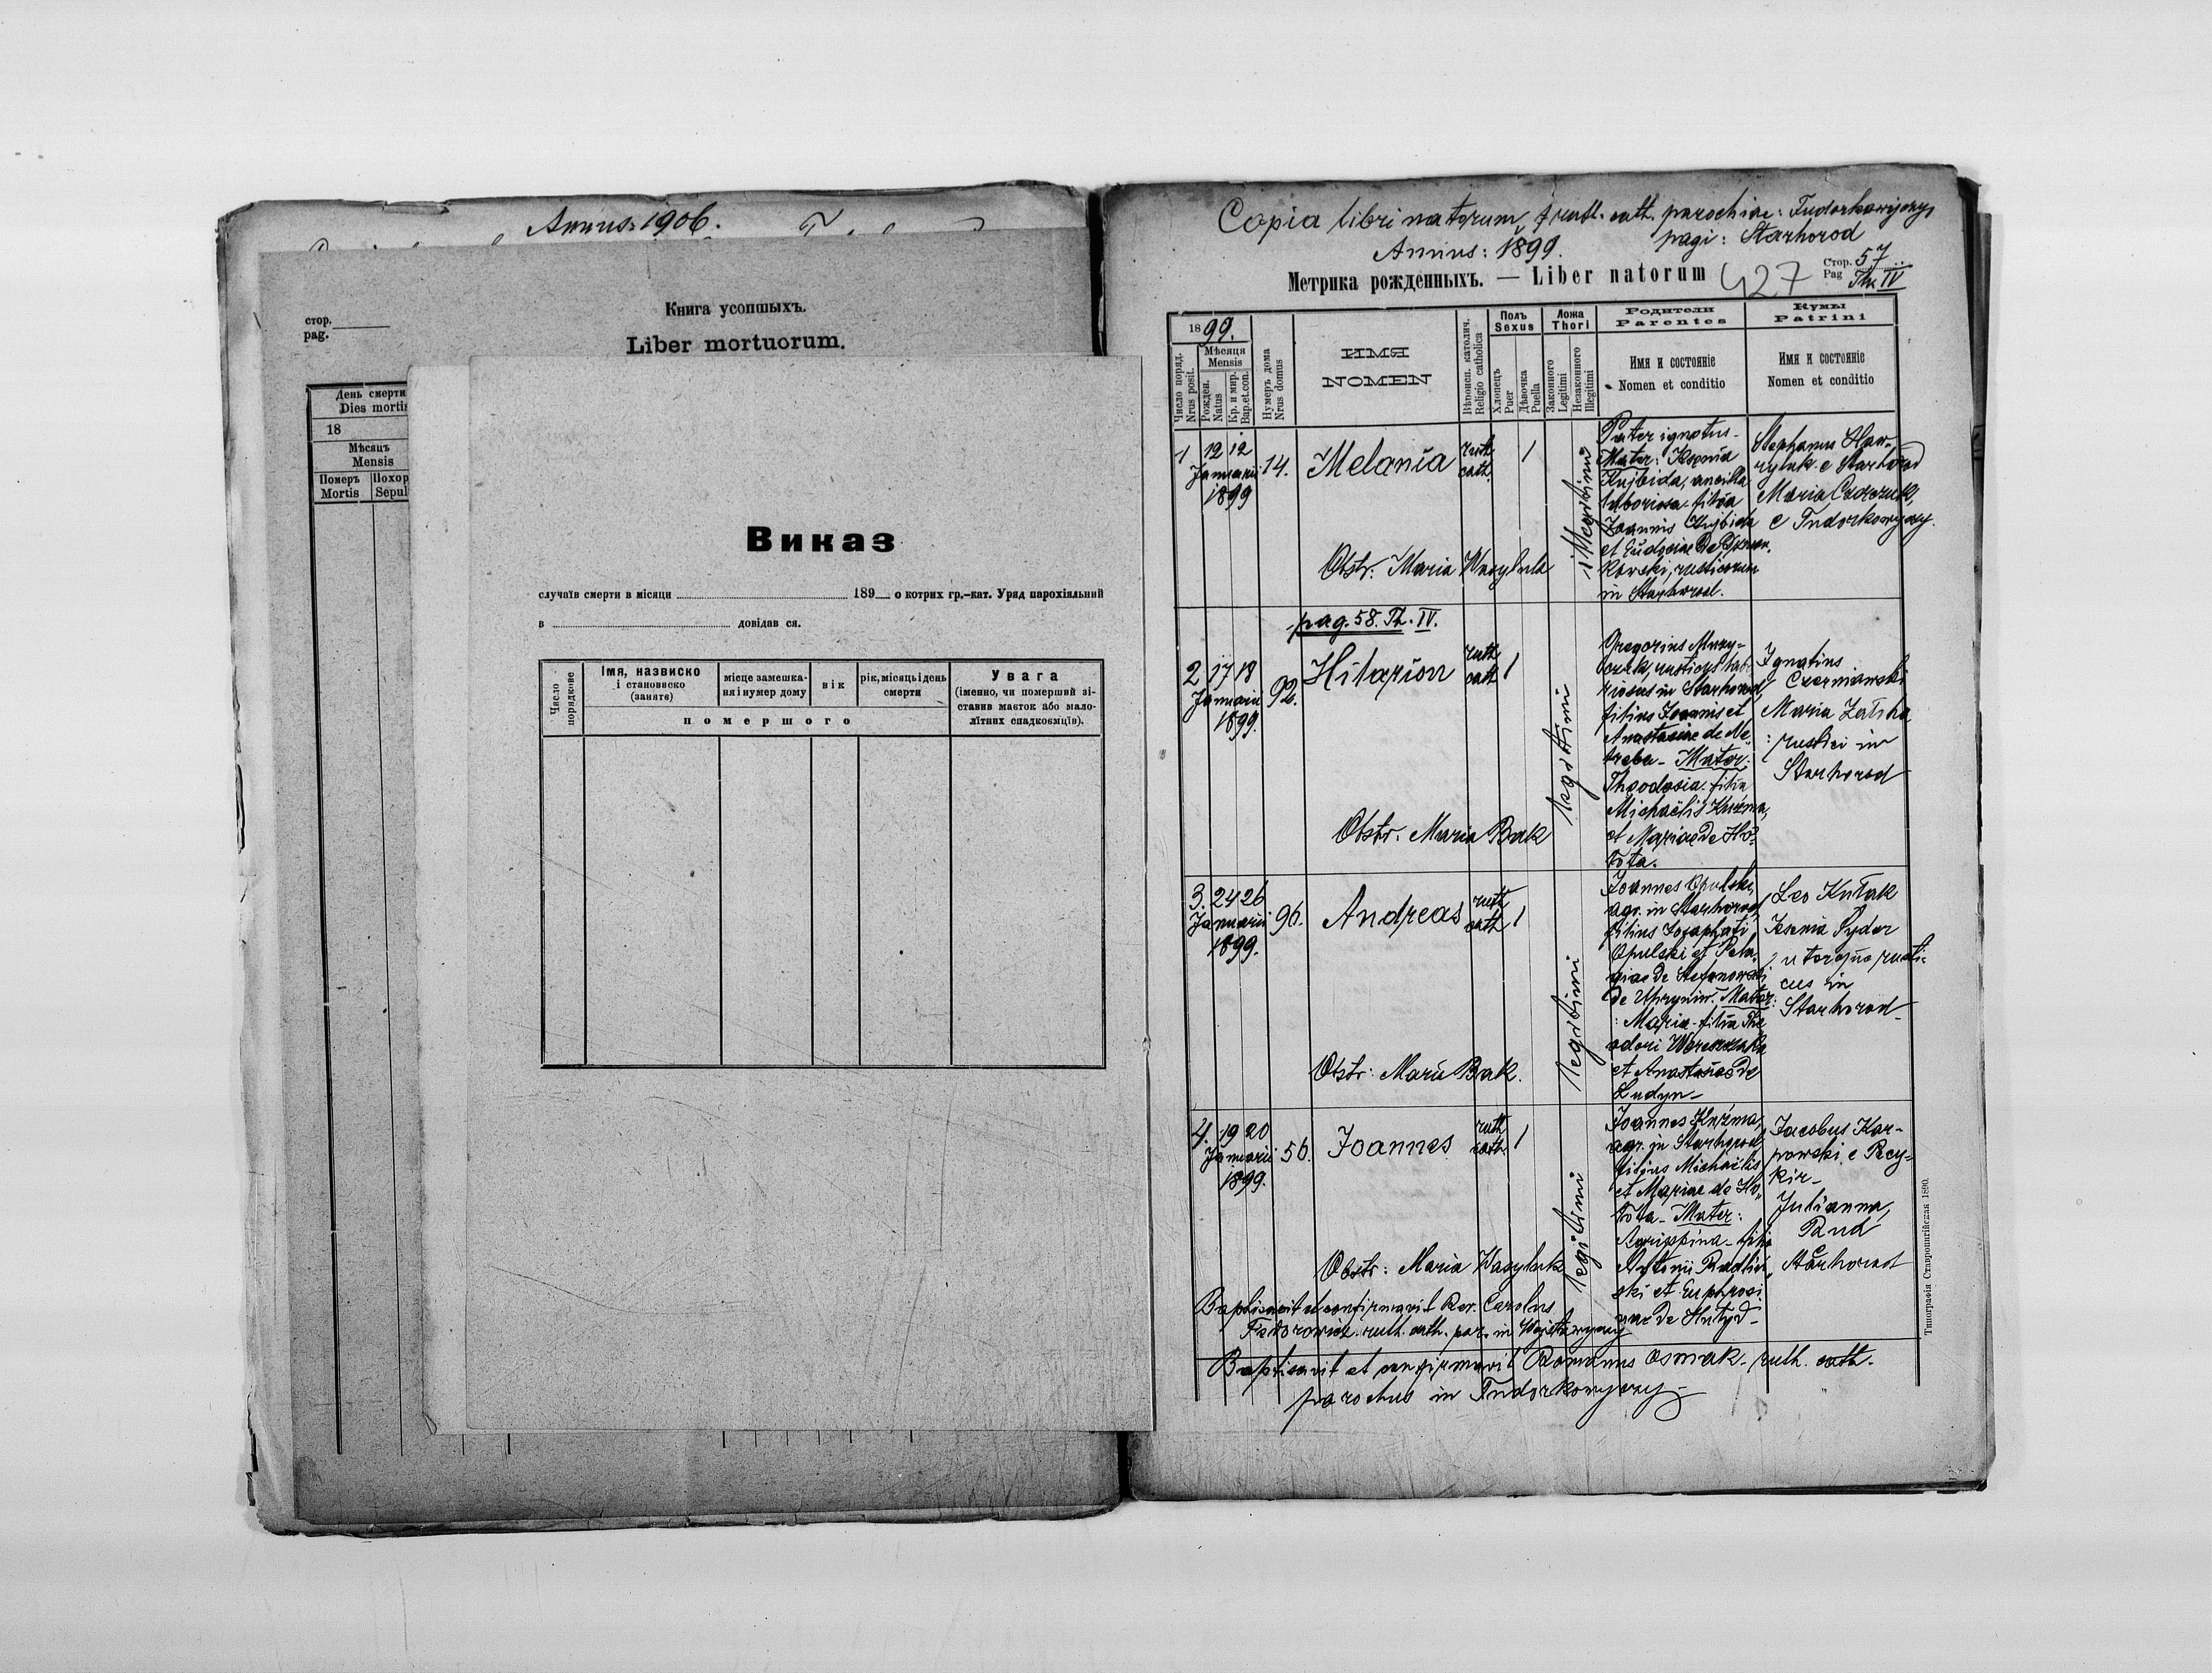 Annus: 1906.
Книга усопшыхъ.
стор.
pag.
Liber mortuorum.
День смерти
Dies mortis
18
Мѣсяцъ
Mensis
Померъ Похор
Mortis Sepul
Виказ
случаїв смерти в місяци 189 о котрих гр.-кат. Уряд парохіяльний
в довідав ся.
Число порядкове
Імя, назвиско
і становиско
(заняте)
місце замешка-
ня і нумер дому
вік
рік, місяць і день
смерти
помершого
Увага
(іменно, чи померший зі-
ставив маєток або мало-
літних спадкоємців).
Copia libri natorum ruth. cath. parochiae: Tudorkowyczy
pagi: Starhorod
Annus: 1899.
Метрика рожденныхъ. — Liber natorum 427
Стор. 57
Pag Th. IV
1899.
Число поряд.
Nrus posit.
Мѣсяця
Mensis
Рожден.
Natus
Кр. и мир.
Bap.et.con.
Нумеръ дома
Nrus domus
ИМЯ
NOMEN
Вѣроисп. католич.
Religio catholica
Полъ
Sexus
Хлопецъ
Puer
Дѣвочка
Puella
Ложа
Thori
Законного
Legitimi
Незаконного
Illegitimi
Родители
Parentes
Имя и состояніе
Nomen et conditio
Кумы
Patrini
Имя и состояніе
Nomen et conditio
1 12 12
Januarii
1899
14.
Melania
ruth
cath.
1
illegitimi
Pater ignotus -
Mater: Ksenia
Kujbida, ancilla
laboriosa filia
Joannis Kujbida
et Eudociae de
kowski, rusticorum
in Starhorod.
Stephanus Haw-
ryluk e Starhorod
Maria
e Tudorkowyczy.
Obstr: Maria Wasyluk
pag. 58. Th. IV.
2 17 18
Januarii
1899.
92.
Hilarion
ruth
cath
1
legitimi
Gregorius Muzy-
czuk, rusticus
in Starhorod,
filius Joannis et
Anastasiae de Ne-
treba - Mater:
Theodosia filia
Michaëlis Kuźma,
et Mariae de Ho-
łota.
Ignatius
Czerniawski
Maria Załuha
: rustici in
Starhorod
Obstr. Maria Bak
3. 24 26
Januarii
1899.
96.
Andreas
ruth
cath
1
legitimi
Joannes Opulski,
agr. in Starhorod,
filius Josaphati
Opulski et Pela-
giae de Stefanowski
de Uhrynów. Mater:
: Maria - filia The
odori Wereszczaka
et Anastasiae de
Ludyn -
Leo Kułak
Ksenia Sydor
uterque rusti-
cus in
Starhorod -
Obstr: Maria Bak.
4. 19 20
Januarii
1899.
56.
Joannes
ruth
cath
1
legitimi
Joannes Kuźma,
agr. in Starhorod
filius Michaëlis
et Mariae de Ho-
łota - Mater:
Agrippina - filia
Antonii
ski et Euphrosi
nae de Hutyd -
Jacobus Kar-
powski e Recy-
kir -
Julianna,
Pand
e
Starhorod
Obstr: Maria Wasyluk
Baptisavit et confirmavit Rev. Carolus
Fedorowicz ruth. cath. par. in Wojsławyczy
Baptisavit et confirmavit Romanus Osmak - ruth. cath.
parochus in Tudorkowyczy -
Типографія Ставропигійская 1890.